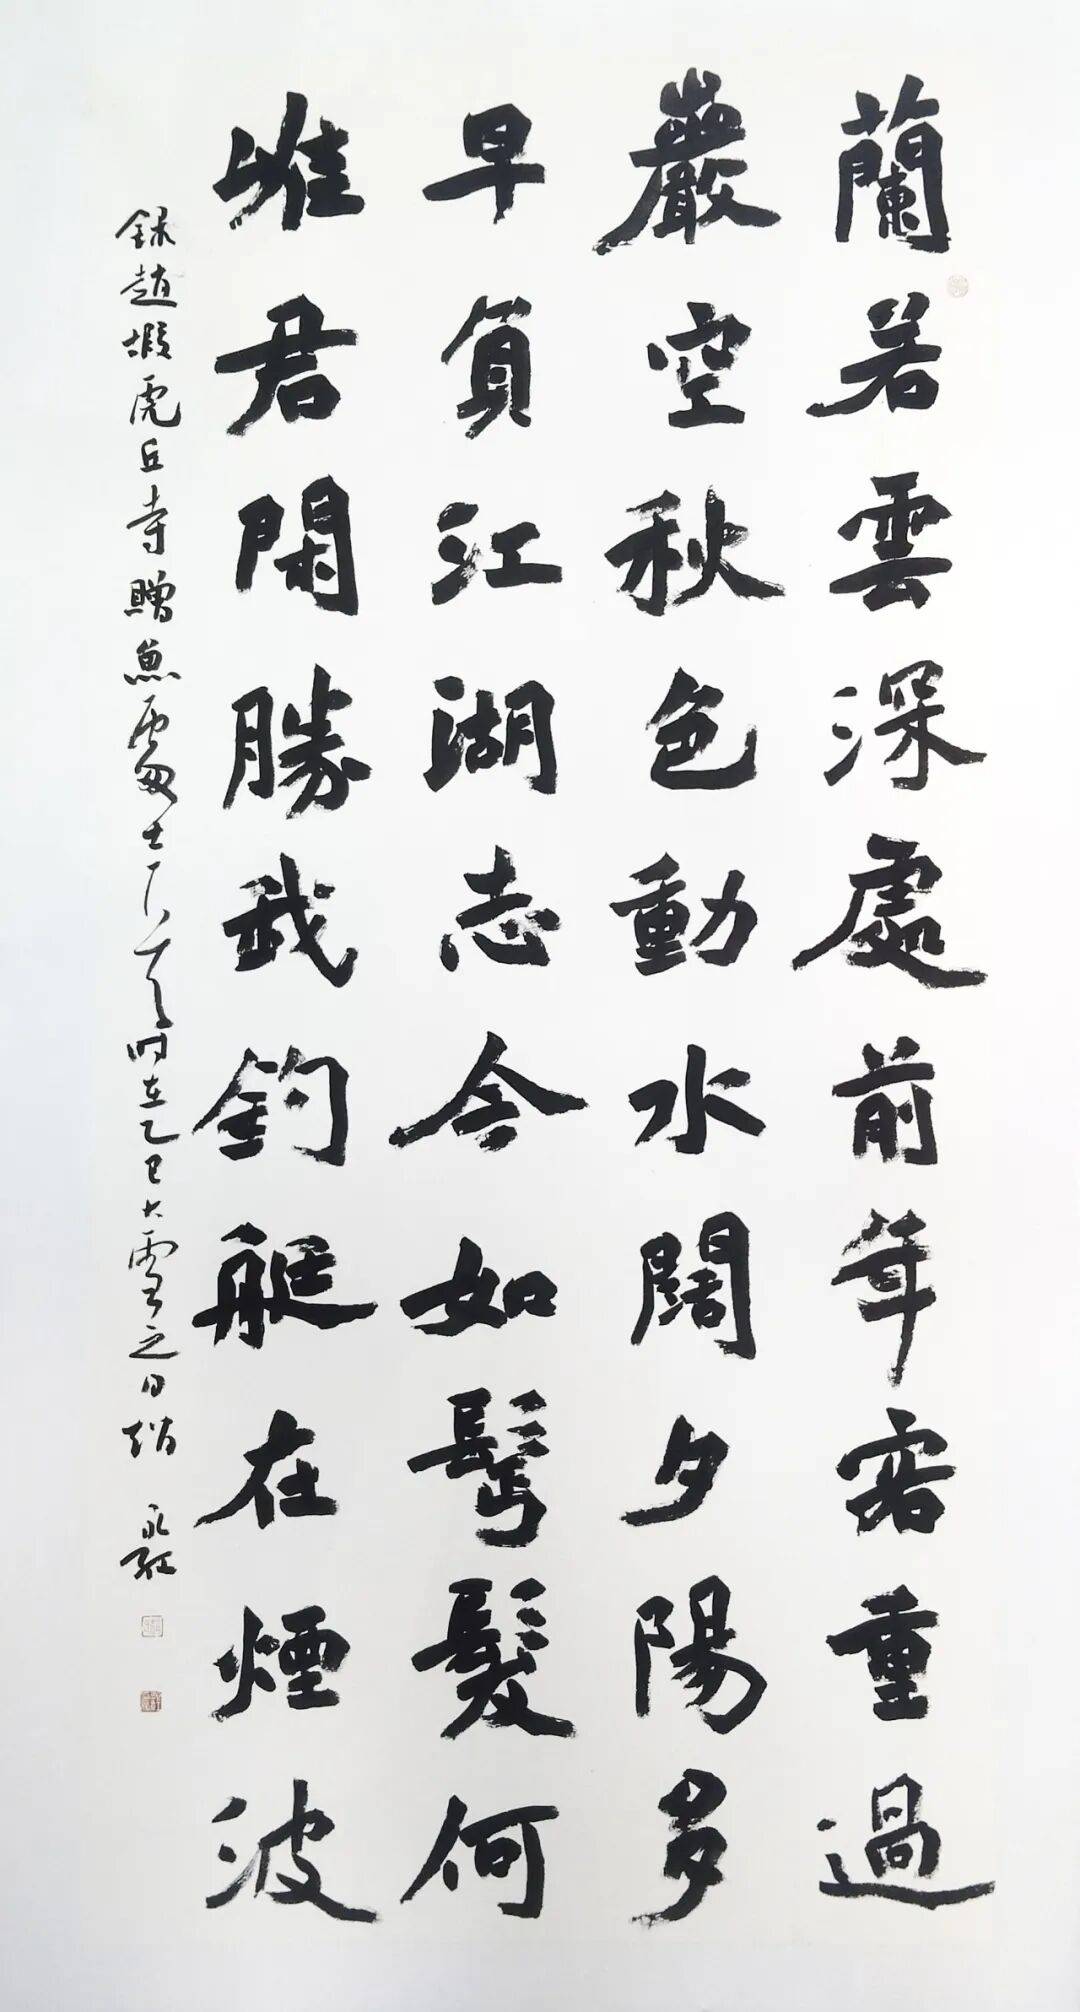 蘭若雲深處前年客重過
巖空秋色動水闊夕陽多
早負江湖志今如鬢髮何
惟君閑勝我釣艇在煙波
録趙嘏虎丘寺贈魚處士時在乙巳大雪之日